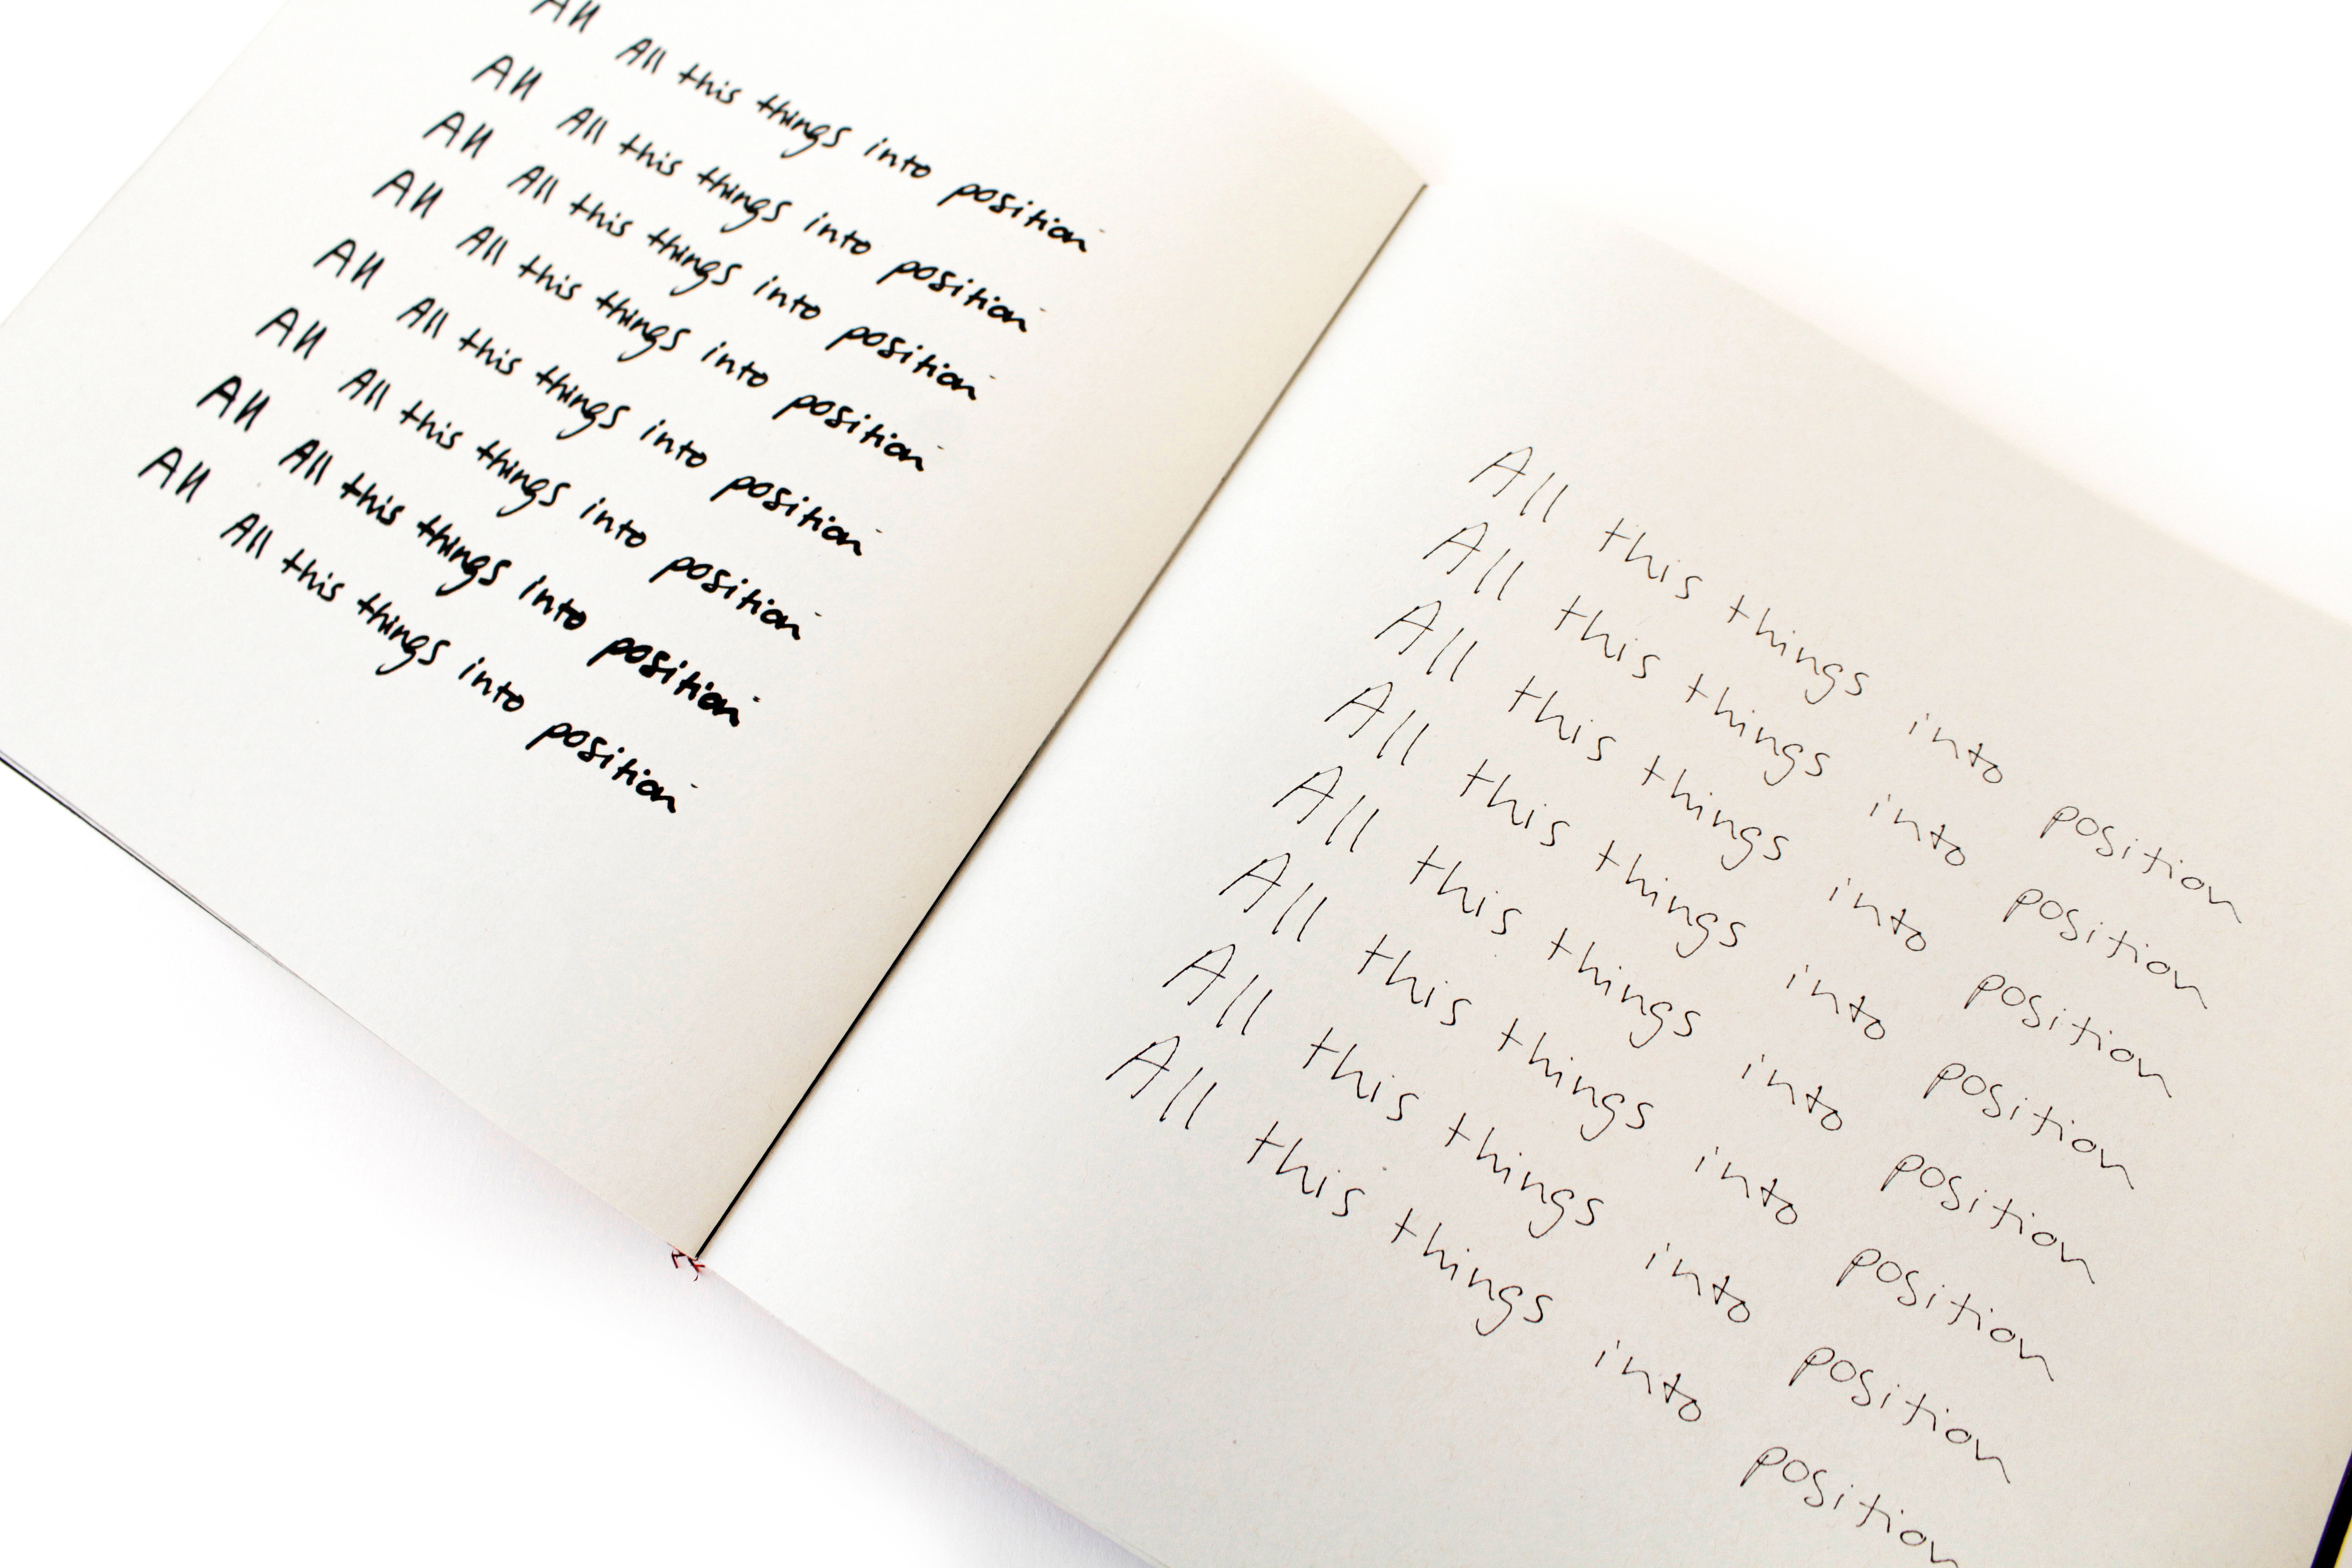 All All this things into position
All All this things into position
All All this things into position
All All this things into position
All All this things into position
All All this things into position
All All this things into position
All All this things into position
All this things into position
All this things into position
All this things into position
All this things into position
All this things into position
All this things into position
All this things into position
All this things into position